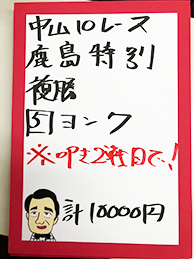 中山10レース
鹿島特別
複勝
5ヨンク
※叩き2戦目で!
計10000円